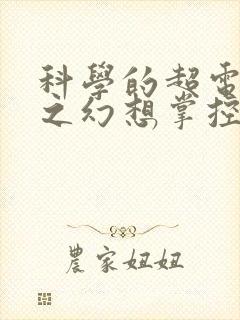 科學的超電
之幻想掌控
農家妞妞